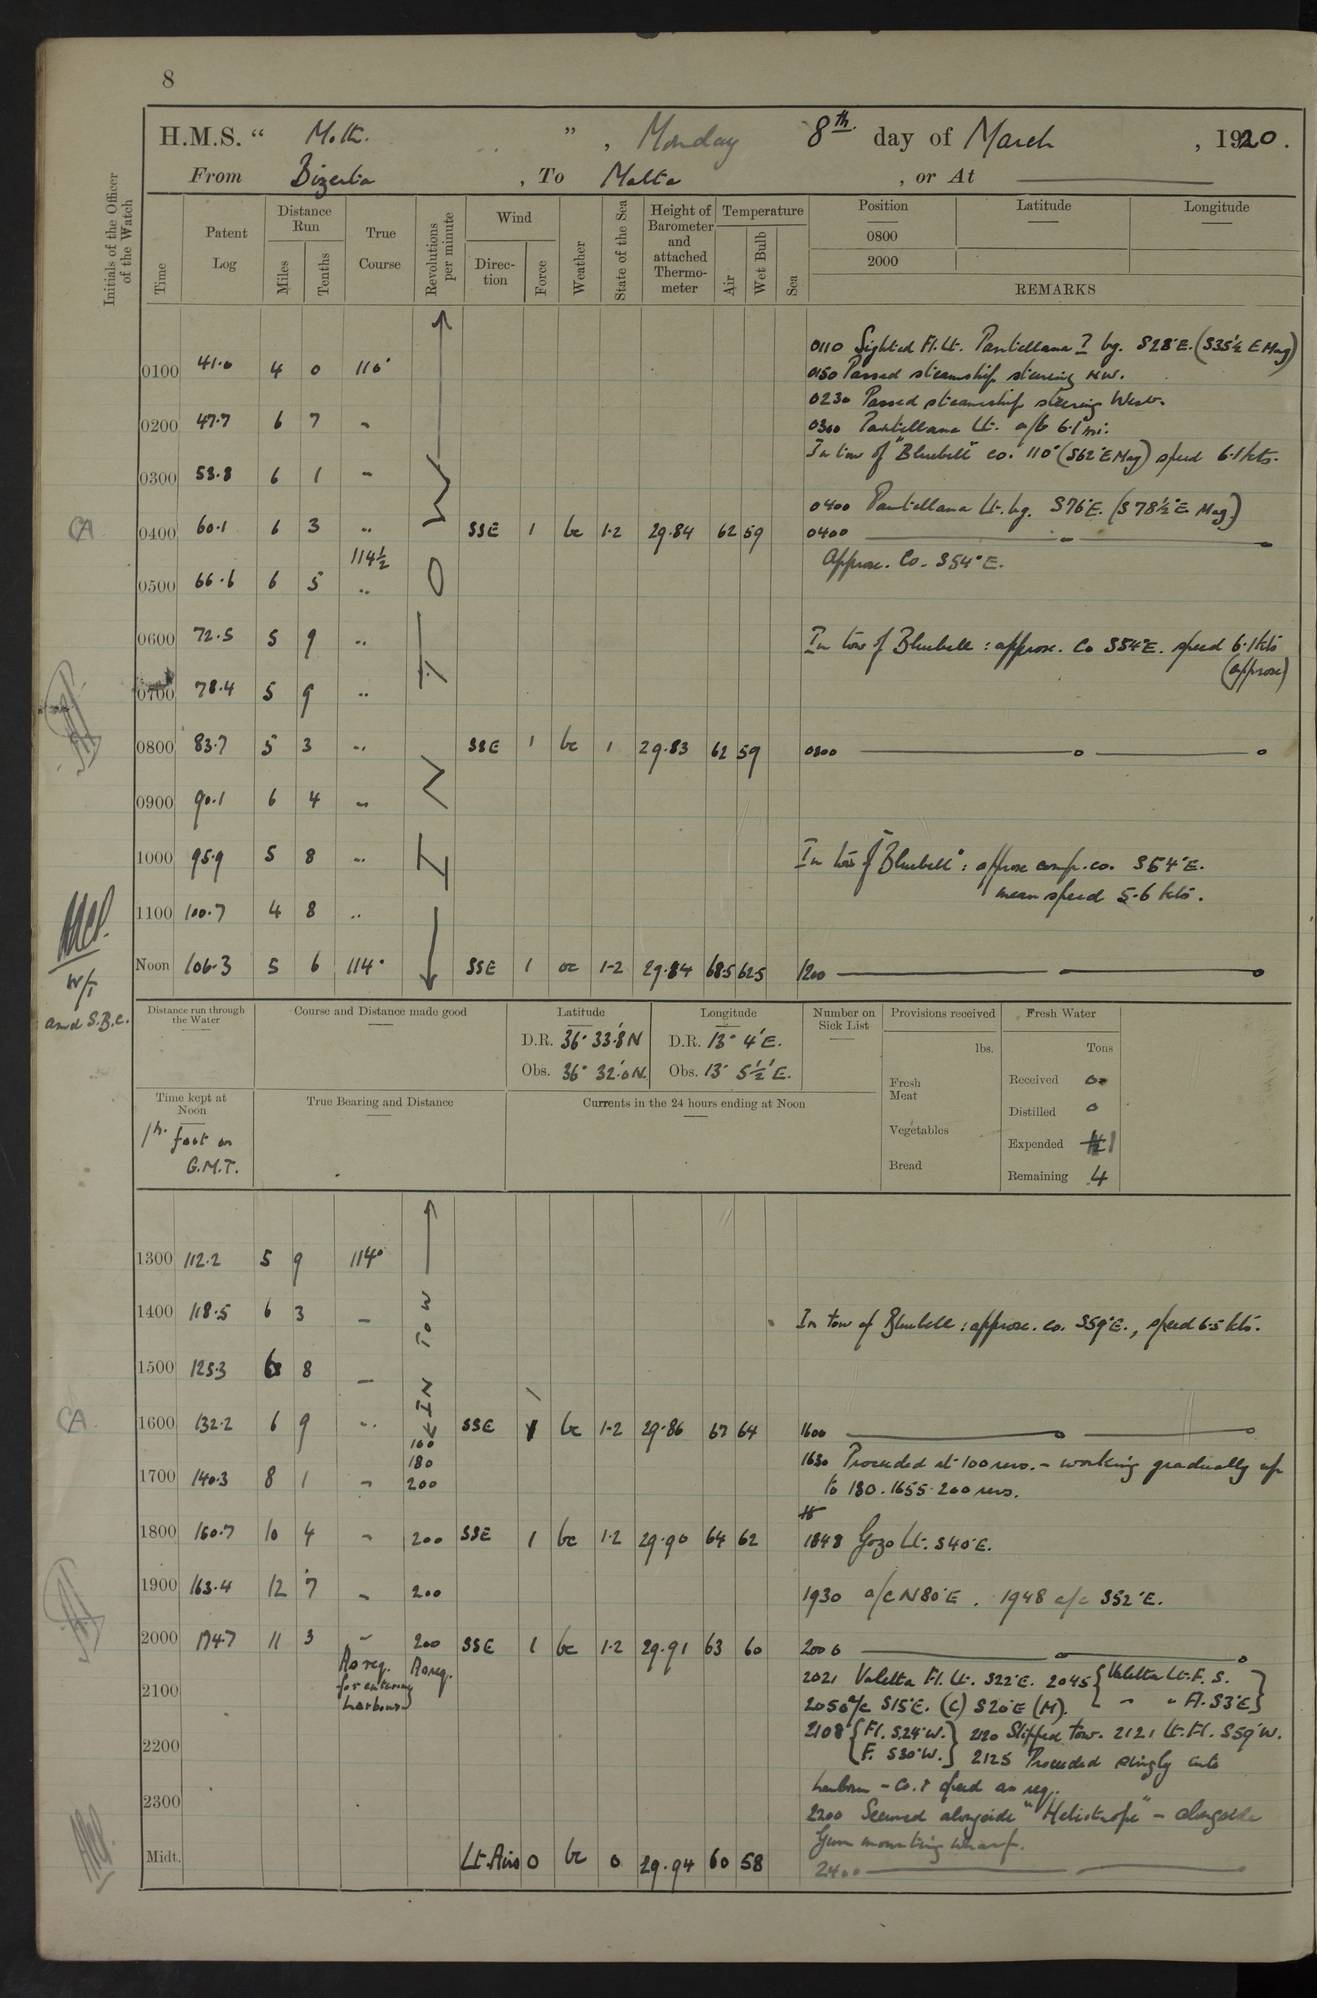 8
H.M.S. “ Moth. ” , Monday 8th day of March , 1920.
From Bizerta , To Malta , or At
Initials of the Officer of the Watch
Time
Patent Log
Distance Run
Miles
Tenths
True Course
Revolutions per minute
Wind
Direction
Force
Weather
State of the Sea
Height of Barometer and attached Thermometer
Temperature
Air
Wet Bulb
Sea
Position
Latitude
Longitude
0800
2000
REMARKS
0110 Sighted Fl. Lt. Pantellana ? bg. S28°E. (S35½ E Mag)
0100 41.0 4 0 110°
0150 Passed steamship steering NW.
0230 Passed steamship steering West.
0200 47.7 6 7 "
0300 Pantellana Lt. a/b 6.1 mi.
In tow of "Bluebell" co. 110° (S62°E Mag) speed 6.1 kts.
0300 53.8 6 1 "
0400 Pantellana Lt. bg. S76°E. (S78½°E Mag.)
CA 0400 60.1 6 3 " SSE 1 bc 1-2 29.84 62 59 0400
114½
Approx. Co. S54°E.
0500 66.6 6 5 "
0600 72.5 5 9 " In tow of Bluebell : approx. Co S54°E. speed 6.1 kts
(approx)
0700 78.4 5 9 "
0800 83.7 5 3 " SSE 1 bc 1 29.83 62 59 0800
0900 90.1 6 4 "
1000 95.9 5 8 " In tow of "Bluebell" : approx comp. co. S54°E.
mean speed 5.6 kts.
1100 100.7 4 8 "
IN TOW
Noon 106.3 5 6 114° SSE 1 oc 1-2 29.84 68.5 62.5 1200
W/T
and S.B.C.
Distance run through the Water
Course and Distance made good
Latitude
D.R. 36° 33.8'N
Obs. 36° 32.0'N.
Longitude
D.R. 13° 4'E.
Obs. 13° 5½'E.
Number on Sick List
Provisions received
lbs.
Fresh Meat
Vegetables
Bread
Fresh Water
Tons
Received 0
Distilled 0
Expended 1
Remaining 4
Time kept at Noon
1h. fast on
G.M.T.
True Bearing and Distance
Currents in the 24 hours ending at Noon
1300 112.2 5 9 114°
1400 118.5 6 3 " In tow of Bluebell : approx. co. S59°E., speed 6.5 kts.
1500 125.3 6 8 "
IN TOW
CA 1600 132.2 6 9 " SSE 1 bc 1-2 29.86 67 64 1600
100
180
1630 Proceeded at 100 revs. - working gradually up
1700 140.3 8 1 " 200 to 180. 1655 200 revs.
1800 160.7 10 4 " 200 SSE 1 bc 1-2 29.90 64 62 1848 Gozo Lt. S40°E.
1900 163.4 12 7 " 200 1930 a/c N80°E. 1948 a/c S52°E.
2000 174.7 11 3 " 200 SSE 1 bc 1-2 29.91 63 60 2000
As req. for entering harbour As req.
2021 Valetta Fl. Lt. S22°E. 2045 { Valetta Lt. F. S.
" " Fl. S3°E }
2100 2050 a/c S15°E. (C) S20°E (M).
2108 { Fl. S24°W. F. S30°W. } 2120 Slipped tow. 2121 Lt. Fl. S59°W.
2200 2125 Proceeded singly into
harbour - Co. & speed as req.
2300 2200 Secured alongside "Heliotrope" - alongside
Gun mounting wharf.
Midt. Lt Airs 0 bc 0 29.94 60 58 2400